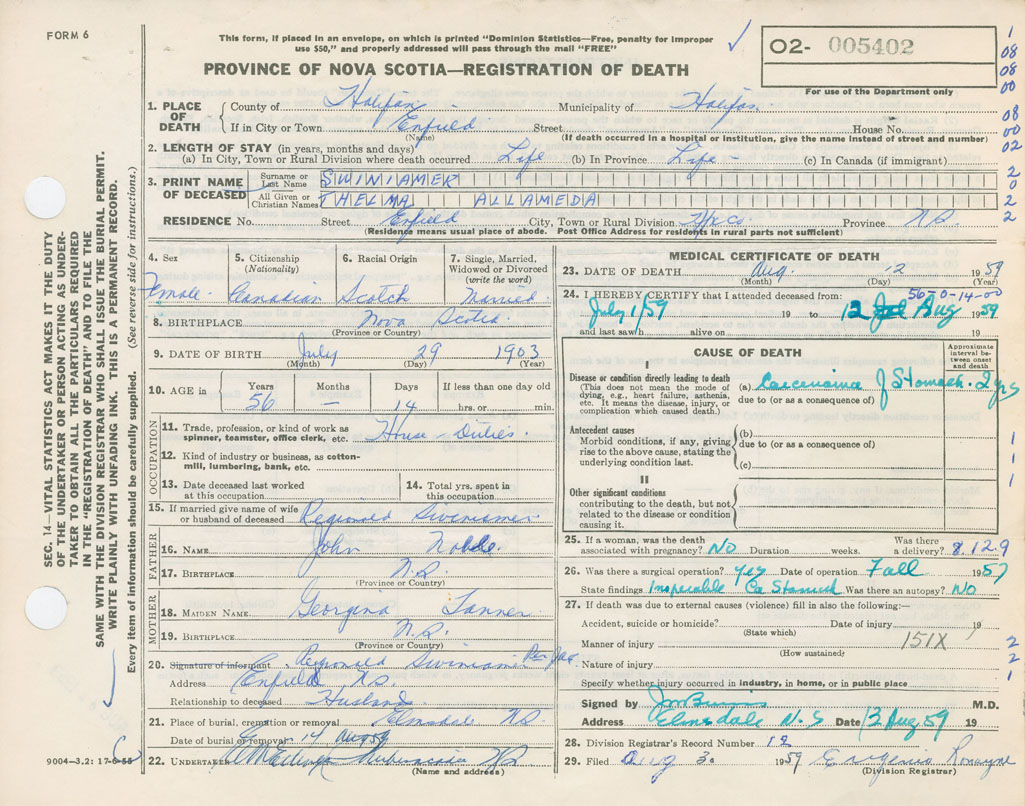 FORM 6
This form, if placed in an envelope, on which is printed "Dominion Statistics—Free, penalty for improper
use $50," and properly addressed will pass through the mail "FREE"
PROVINCE OF NOVA SCOTIA—REGISTRATION OF DEATH
O2- 005402
For use of the Department only
1 08 08 00
08 00 02
2 0 2 2
SEC. 14—VITAL STATISTICS ACT MAKES IT THE DUTY
OF THE UNDERTAKER OR PERSON ACTING AS UNDER-
TAKER TO OBTAIN ALL THE PARTICULARS REQUIRED
IN THE "REGISTRATION OF DEATH" AND TO FILE THE
SAME WITH THE DIVISION REGISTRAR WHO SHALL ISSUE THE BURIAL PERMIT.
WRITE PLAINLY WITH UNFADING INK. THIS IS A PERMANENT RECORD.
Every item of information should be carefully supplied. (See reverse side for instructions.)
1. PLACE OF DEATH County of Halifax Municipality of Halifax
If in City or Town Enfield Street House No.
(Name) (If death occurred in a hospital or institution, give the name instead of street and number)
2. LENGTH OF STAY (in years, months and days)
(a) In City, Town or Rural Division where death occurred Life (b) In Province Life - (c) In Canada (if immigrant)
3. PRINT NAME OF DECEASED Surname or Last Name SWINIAMER
All Given or Christian Names THELMA ALLAMEDA
RESIDENCE No. Street Enfield City, Town or Rural Division Hx Co. Province N.S.
(Residence means usual place of abode. Post Office Address for residents in rural parts not sufficient)
4. Sex Female
5. Citizenship (Nationality) Canadian
6. Racial Origin Scotch
7. Single, Married, Widowed or Divorced (write the word) Married
8. BIRTHPLACE Nova Scotia
(Province or Country)
9. DATE OF BIRTH July 29 1903
(Month) (Day) (Year)
10. AGE in Years 56 Months — Days 14 If less than one day old hrs. or min.
OCCUPATION
11. Trade, profession, or kind of work as
spinner, teamster, office clerk, etc. House-Duties
12. Kind of industry or business, as cotton-
mill, lumbering, bank, etc.
13. Date deceased last worked at this occupation
14. Total yrs. spent in this occupation
15. If married give name of wife
or husband of deceased Reginald Swiniamer
FATHER
16. NAME John
17. BIRTHPLACE N.S.
(Province or Country)
MOTHER
18. MAIDEN NAME Georgina Tanner
19. BIRTHPLACE N.S.
(Province or Country)
20. Signature of informant Reginald Swiniamer
Address Enfield N.S.
Relationship to deceased Husband
21. Place of burial, cremation or removal Elmsdale N.S.
Date of burial or removal 14 Aug 59
22. UNDERTAKER N.S.
(Name and address)
9004—3.2: 17-6-55
MEDICAL CERTIFICATE OF DEATH
23. DATE OF DEATH Aug. 12 1959
(Month) (Day) (Year)
56-0-14-00
24. I HEREBY CERTIFY that I attended deceased from:
July 1/59 19 to 12 Aug 1959
and last saw h alive on 19
CAUSE OF DEATH
Approximate interval between onset and death
I
Disease or condition directly leading to death
(This does not mean the mode of
dying, e.g., heart failure, asthenia,
etc. It means the disease, injury, or
complication which caused death.)
(a) Carcenoima of Stomach 2 yrs
due to (or as a consequence of)
Antecedent causes
Morbid conditions, if any, giving
rise to the above cause, stating the
underlying condition last.
(b)
due to (or as a consequence of)
(c)
1
1
1
II
Other significant conditions
contributing to the death, but not
related to the disease or condition
causing it.
25. If a woman, was the death
associated with pregnancy? No Duration weeks. Was there a delivery? 8.12.9
26. Was there a surgical operation? Yes Date of operation Fall 1957
State findings Inoperable Ca Stomach Was there an autopsy? NO
27. If death was due to external causes (violence) fill in also the following:—
Accident, suicide or homicide? Date of injury 19
(State which)
151X
Manner of injury 2
(How sustained)
Nature of injury 2
Specify whether injury occurred in industry, in home, or in public place 1
Signed by M.D.
Address Elmsdale N.S Date 13 Aug 59 19
28. Division Registrar's Record Number 12
29. Filed Aug 30 1959 Eugenie Romayne
(Division Registrar)